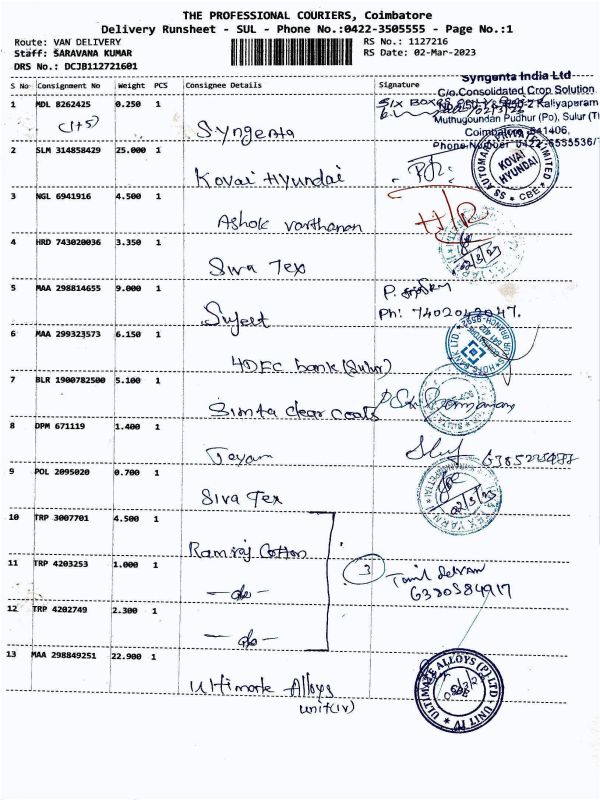 THE PROFESSIONAL COURIERS, Coimbatore
Delivery Runsheet - SUL - Phone No.:0422-3505555 - Page No.:1
Route: VAN DELIVERY
RS No.: 1127216
Staff: SARAVANA KUMAR
RS Date: 02-Mar-2023
DRS No.: DCJB112721601
S No Consignment No Weight PCS Consignee Details Signature
Syngenta India Ltd
C/o.Consolidated Crop Solution
Kaliyapuram
Muthugoundan Pudhur (Po), Sulur (T
Coimbatore 641406,
Phone Number 0422-6555536/
1 MDL 8262425 0.250 1
SIX BOXES
(1+5)
Syngenta
2 SLM 314858429 25.000 1
Kovai Hyundai
KOVAI HYUNDAI
CBE
3 NGL 6941916 4.500 1
Ashok varthanan
H/R
4 HRD 743020036 3.350 1
Siva Tex
02/3/23
5 MAA 298814655 9.000 1
Sujeet
Ph: 7402042047.
6 MAA 299323573 6.150 1
HDFC bank (Sulur)
7 BLR 1900782500 5.100 1
Simta clear coats
8 DPM 671119 1.400 1
Jeyam
9 POL 2095020 0.700 1
Siva Tex
02/3/23
10 TRP 3007701 4.500 1
Ramraj Cotton
11 TRP 4203253 1.000 1
-do-
3
Tamil Selvan
6380384917
12 TRP 4202749 2.300 1
-do-
13 MAA 298849251 22.900 1
Ultimate Alloys
unit(iv)
ULTIMATE ALLOYS (P) LTD UNIT IV